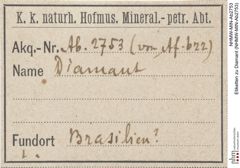 K. k. naturh. Hofmus. Mineral.-petr. Abt.
Akq.-Nr. Ab. 2753 (von Af. 622)
Name Diamant
Fundort Brasilien?
Etiketten zu Diamant (NHMW-MIN-Ab2753)
NHMW-MIN-Ab2753
nhm